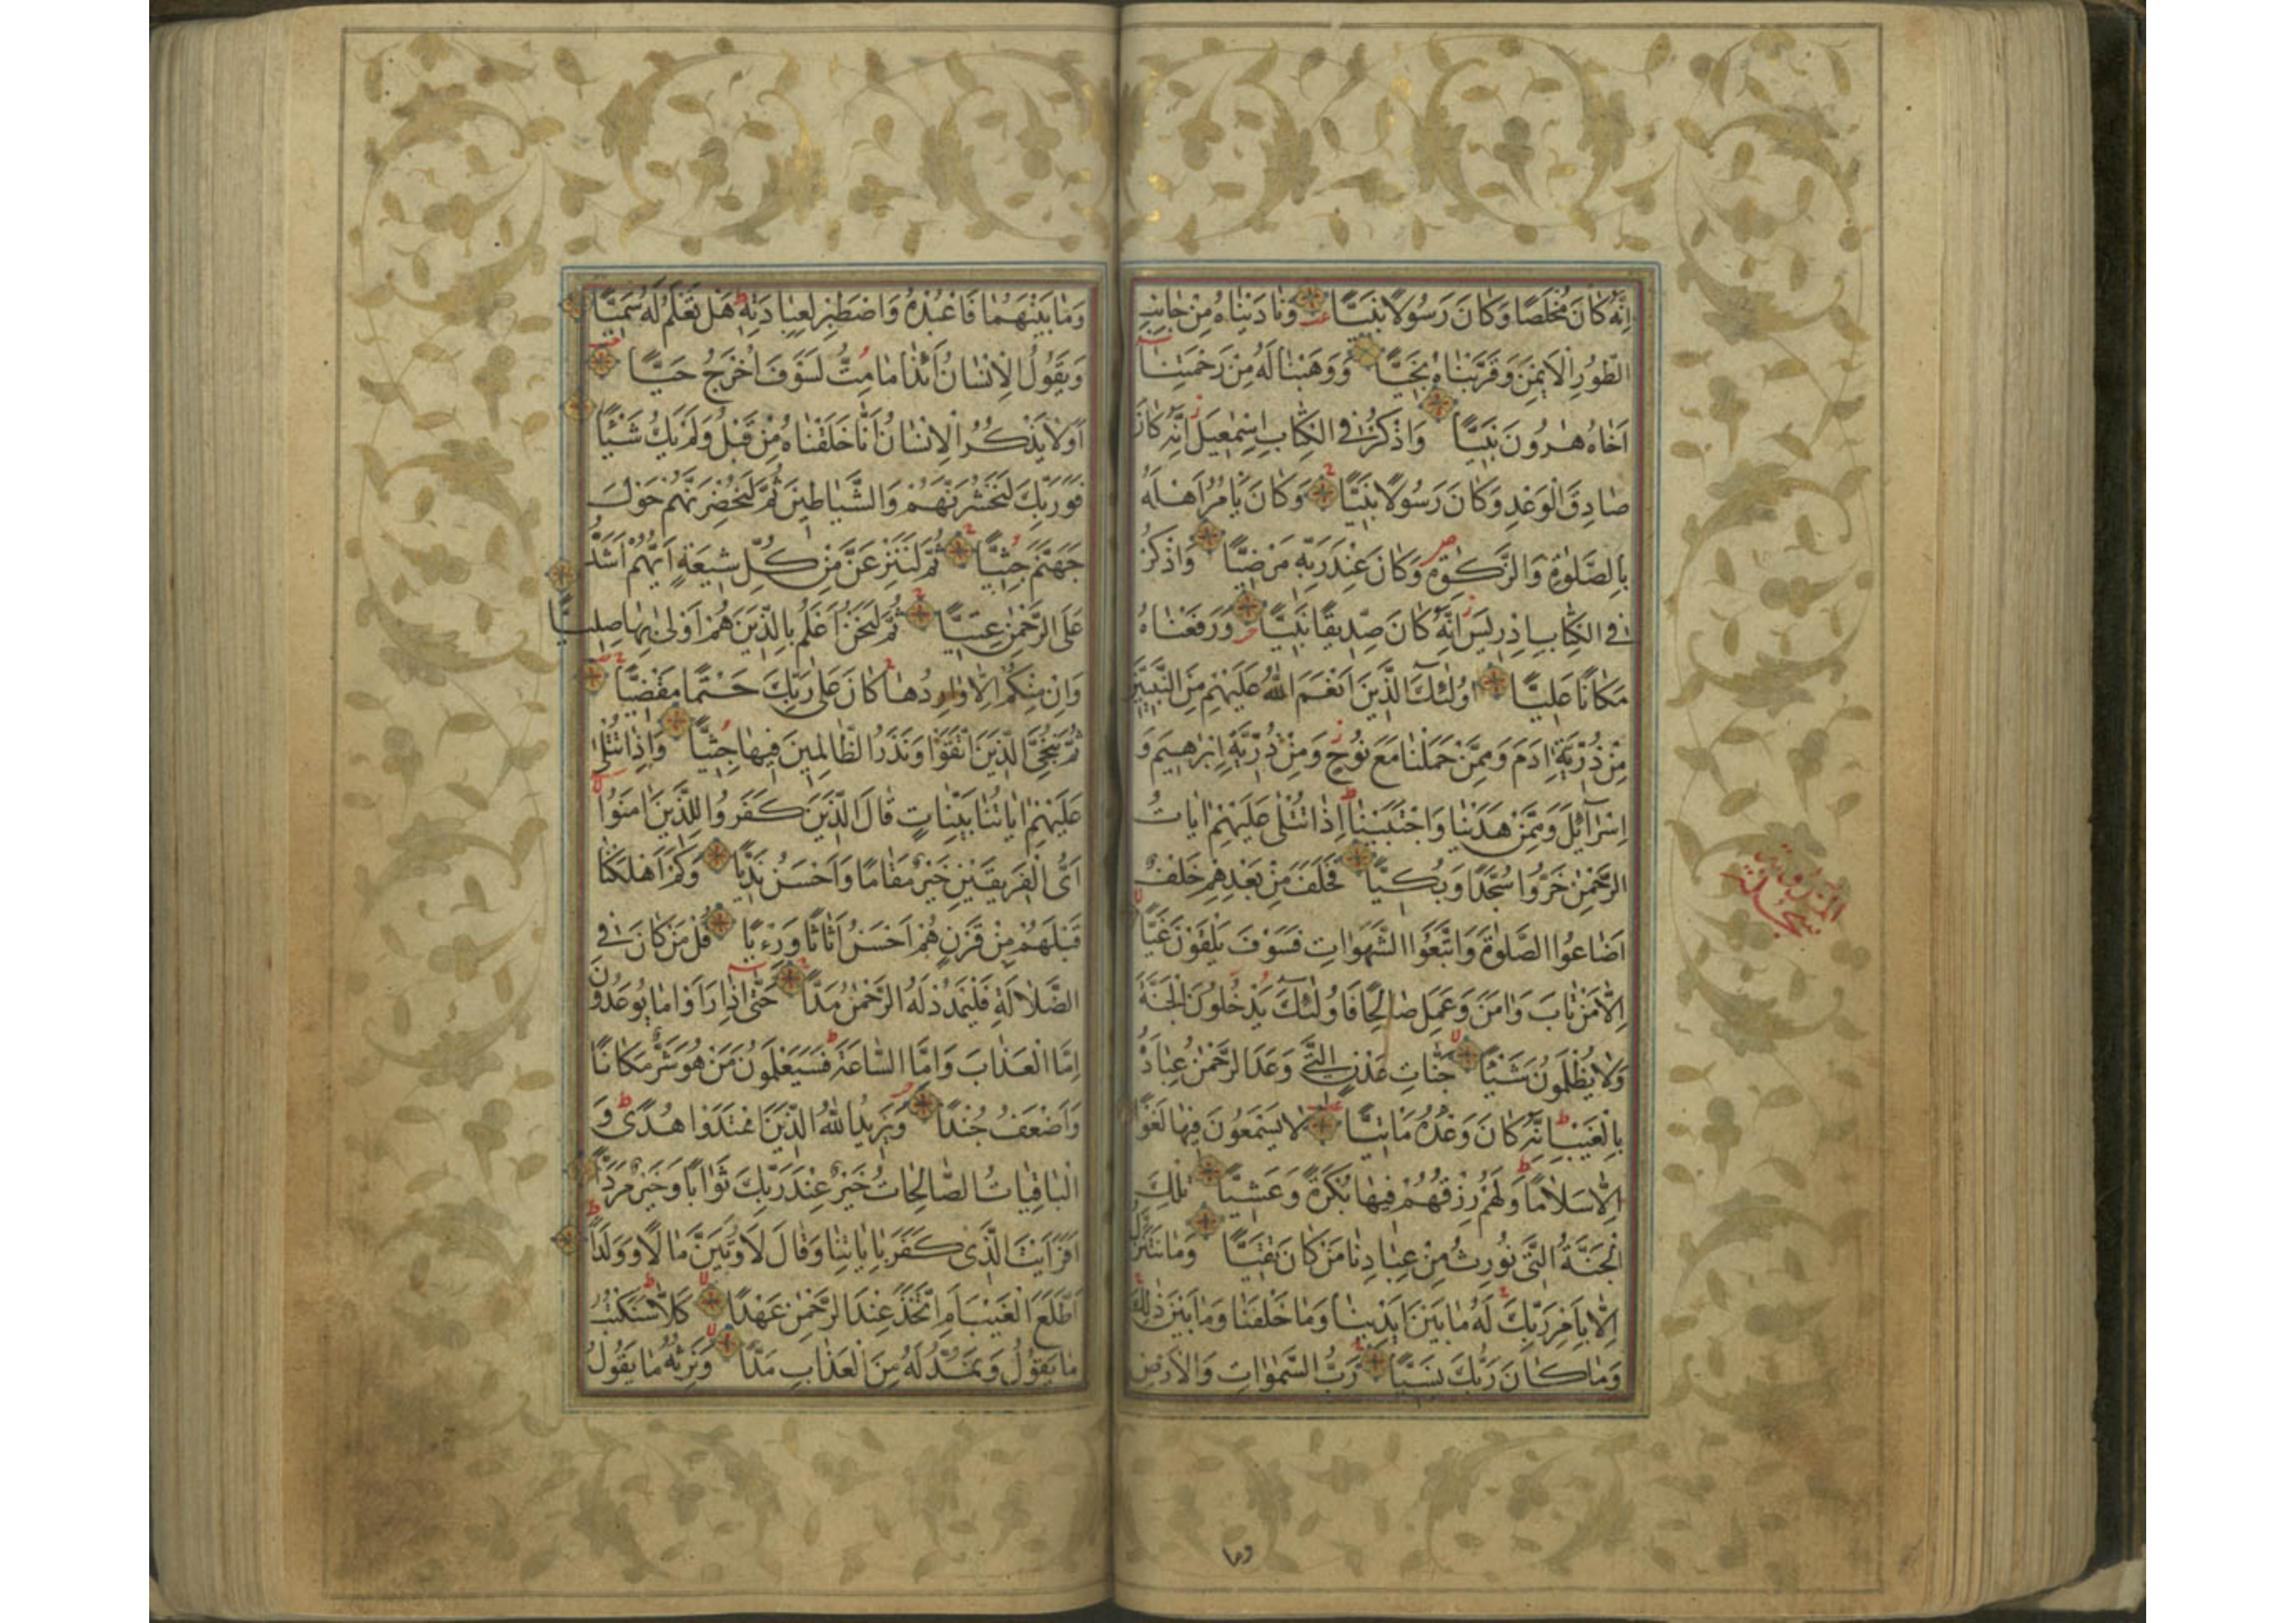 اِنَّهُ كَانَ مُخْلَصًا وَكَانَ رَسُولًا نَبِيًّا وَنَادَيْنَاهُ مِنْ جَانِبِ
الطُّورِ الْاَيْمَنِ وَقَرَّبْنَاهُ نَجِيًّا وَوَهَبْنَا لَهُ مِنْ رَحْمَتِنَا
اَخَاهُ هٰرُونَ نَبِيًّا وَاذْكُرْ فِي الْكِتَابِ اِسْمٰعِيلَ اِنَّهُ كَانَ
صَادِقَ الْوَعْدِ وَكَانَ رَسُولًا نَبِيًّا وَكَانَ يَاْمُرُ اَهْلَهُ
بِالصَّلٰوةِ وَالزَّكٰوةِ وَكَانَ عِنْدَ رَبِّهِ مَرْضِيًّا وَاذْكُرْ
فِي الْكِتَابِ اِدْرِيسَ اِنَّهُ كَانَ صِدِّيقًا نَبِيًّا وَرَفَعْنَاهُ
مَكَانًا عَلِيًّا اُولٰئِكَ الَّذِينَ اَنْعَمَ اللّٰهُ عَلَيْهِمْ مِنَ النَّبِيِّينَ
مِنْ ذُرِّيَّةِ اٰدَمَ وَمِمَّنْ حَمَلْنَا مَعَ نُوحٍ وَمِنْ ذُرِّيَّةِ اِبْرٰهِيمَ وَ
اِسْرَآئِلَ وَمِمَّنْ هَدَيْنَا وَاجْتَبَيْنَا اِذَا تُتْلٰى عَلَيْهِمْ اٰيَاتُ
الرَّحْمٰنِ خَرُّوا سُجَّدًا وَبُكِيًّا فَخَلَفَ مِنْ بَعْدِهِمْ خَلْفٌ
اَضَاعُوا الصَّلٰوةَ وَاتَّبَعُوا الشَّهَوَاتِ فَسَوْفَ يَلْقَوْنَ غَيًّا
اِلَّا مَنْ تَابَ وَاٰمَنَ وَعَمِلَ صَالِحًا فَاُولٰئِكَ يَدْخُلُونَ الْجَنَّةَ
وَلَا يُظْلَمُونَ شَيْئًا جَنَّاتِ عَدْنٍ الَّتِي وَعَدَ الرَّحْمٰنُ عِبَادَهُ
بِالْغَيْبِ اِنَّهُ كَانَ وَعْدُهُ مَاْتِيًّا لَا يَسْمَعُونَ فِيهَا لَغْوًا
اِلَّا سَلَامًا وَلَهُمْ رِزْقُهُمْ فِيهَا بُكْرَةً وَعَشِيًّا تِلْكَ
الْجَنَّةُ الَّتِي نُورِثُ مِنْ عِبَادِنَا مَنْ كَانَ تَقِيًّا وَمَا نَتَنَزَّلُ
اِلَّا بِاَمْرِ رَبِّكَ لَهُ مَا بَيْنَ اَيْدِينَا وَمَا خَلْفَنَا وَمَا بَيْنَ ذٰلِكَ
وَمَا كَانَ رَبُّكَ نَسِيًّا رَبُّ السَّمٰوَاتِ وَالْاَرْضِ
وما
وَمَا بَيْنَهُمَا فَاعْبُدْهُ وَاصْطَبِرْ لِعِبَادَتِهِ هَلْ تَعْلَمُ لَهُ سَمِيًّا
وَيَقُولُ الْاِنْسَانُ ءَاِذَا مَا مِتُّ لَسَوْفَ اُخْرَجُ حَيًّا
اَوَلَا يَذْكُرُ الْاِنْسَانُ اَنَّا خَلَقْنَاهُ مِنْ قَبْلُ وَلَمْ يَكُ شَيْئًا
فَوَرَبِّكَ لَنَحْشُرَنَّهُمْ وَالشَّيَاطِينَ ثُمَّ لَنُحْضِرَنَّهُمْ حَوْلَ
جَهَنَّمَ جِثِيًّا ثُمَّ لَنَنْزِعَنَّ مِنْ كُلِّ شِيعَةٍ اَيُّهُمْ اَشَدُّ
عَلَى الرَّحْمٰنِ عِتِيًّا ثُمَّ لَنَحْنُ اَعْلَمُ بِالَّذِينَ هُمْ اَوْلٰى بِهَا صِلِيًّا
وَاِنْ مِنْكُمْ اِلَّا وَارِدُهَا كَانَ عَلٰى رَبِّكَ حَتْمًا مَقْضِيًّا
ثُمَّ نُنَجِّي الَّذِينَ اتَّقَوْا وَنَذَرُ الظَّالِمِينَ فِيهَا جِثِيًّا وَاِذَا تُتْلٰى
عَلَيْهِمْ اٰيَاتُنَا بَيِّنَاتٍ قَالَ الَّذِينَ كَفَرُوا لِلَّذِينَ اٰمَنُوا
اَيُّ الْفَرِيقَيْنِ خَيْرٌ مَقَامًا وَاَحْسَنُ نَدِيًّا وَكَمْ اَهْلَكْنَا
قَبْلَهُمْ مِنْ قَرْنٍ هُمْ اَحْسَنُ اَثَاثًا وَرِءْيًا قُلْ مَنْ كَانَ فِي
الضَّلَالَةِ فَلْيَمْدُدْ لَهُ الرَّحْمٰنُ مَدًّا حَتّٰى اِذَا رَاَوْا مَا يُوعَدُونَ
اِمَّا الْعَذَابَ وَاِمَّا السَّاعَةَ فَسَيَعْلَمُونَ مَنْ هُوَ شَرٌّ مَكَانًا
وَاَضْعَفُ جُنْدًا وَيَزِيدُ اللّٰهُ الَّذِينَ اهْتَدَوْا هُدًى وَ
الْبَاقِيَاتُ الصَّالِحَاتُ خَيْرٌ عِنْدَ رَبِّكَ ثَوَابًا وَخَيْرٌ مَرَدًّا
اَفَرَاَيْتَ الَّذِي كَفَرَ بِاٰيَاتِنَا وَقَالَ لَاُوتَيَنَّ مَالًا وَوَلَدًا
اَطَّلَعَ الْغَيْبَ اَمِ اتَّخَذَ عِنْدَ الرَّحْمٰنِ عَهْدًا كَلَّا سَنَكْتُبُ
مَا يَقُولُ وَنَمُدُّ لَهُ مِنَ الْعَذَابِ مَدًّا وَنَرِثُهُ مَا يَقُولُ